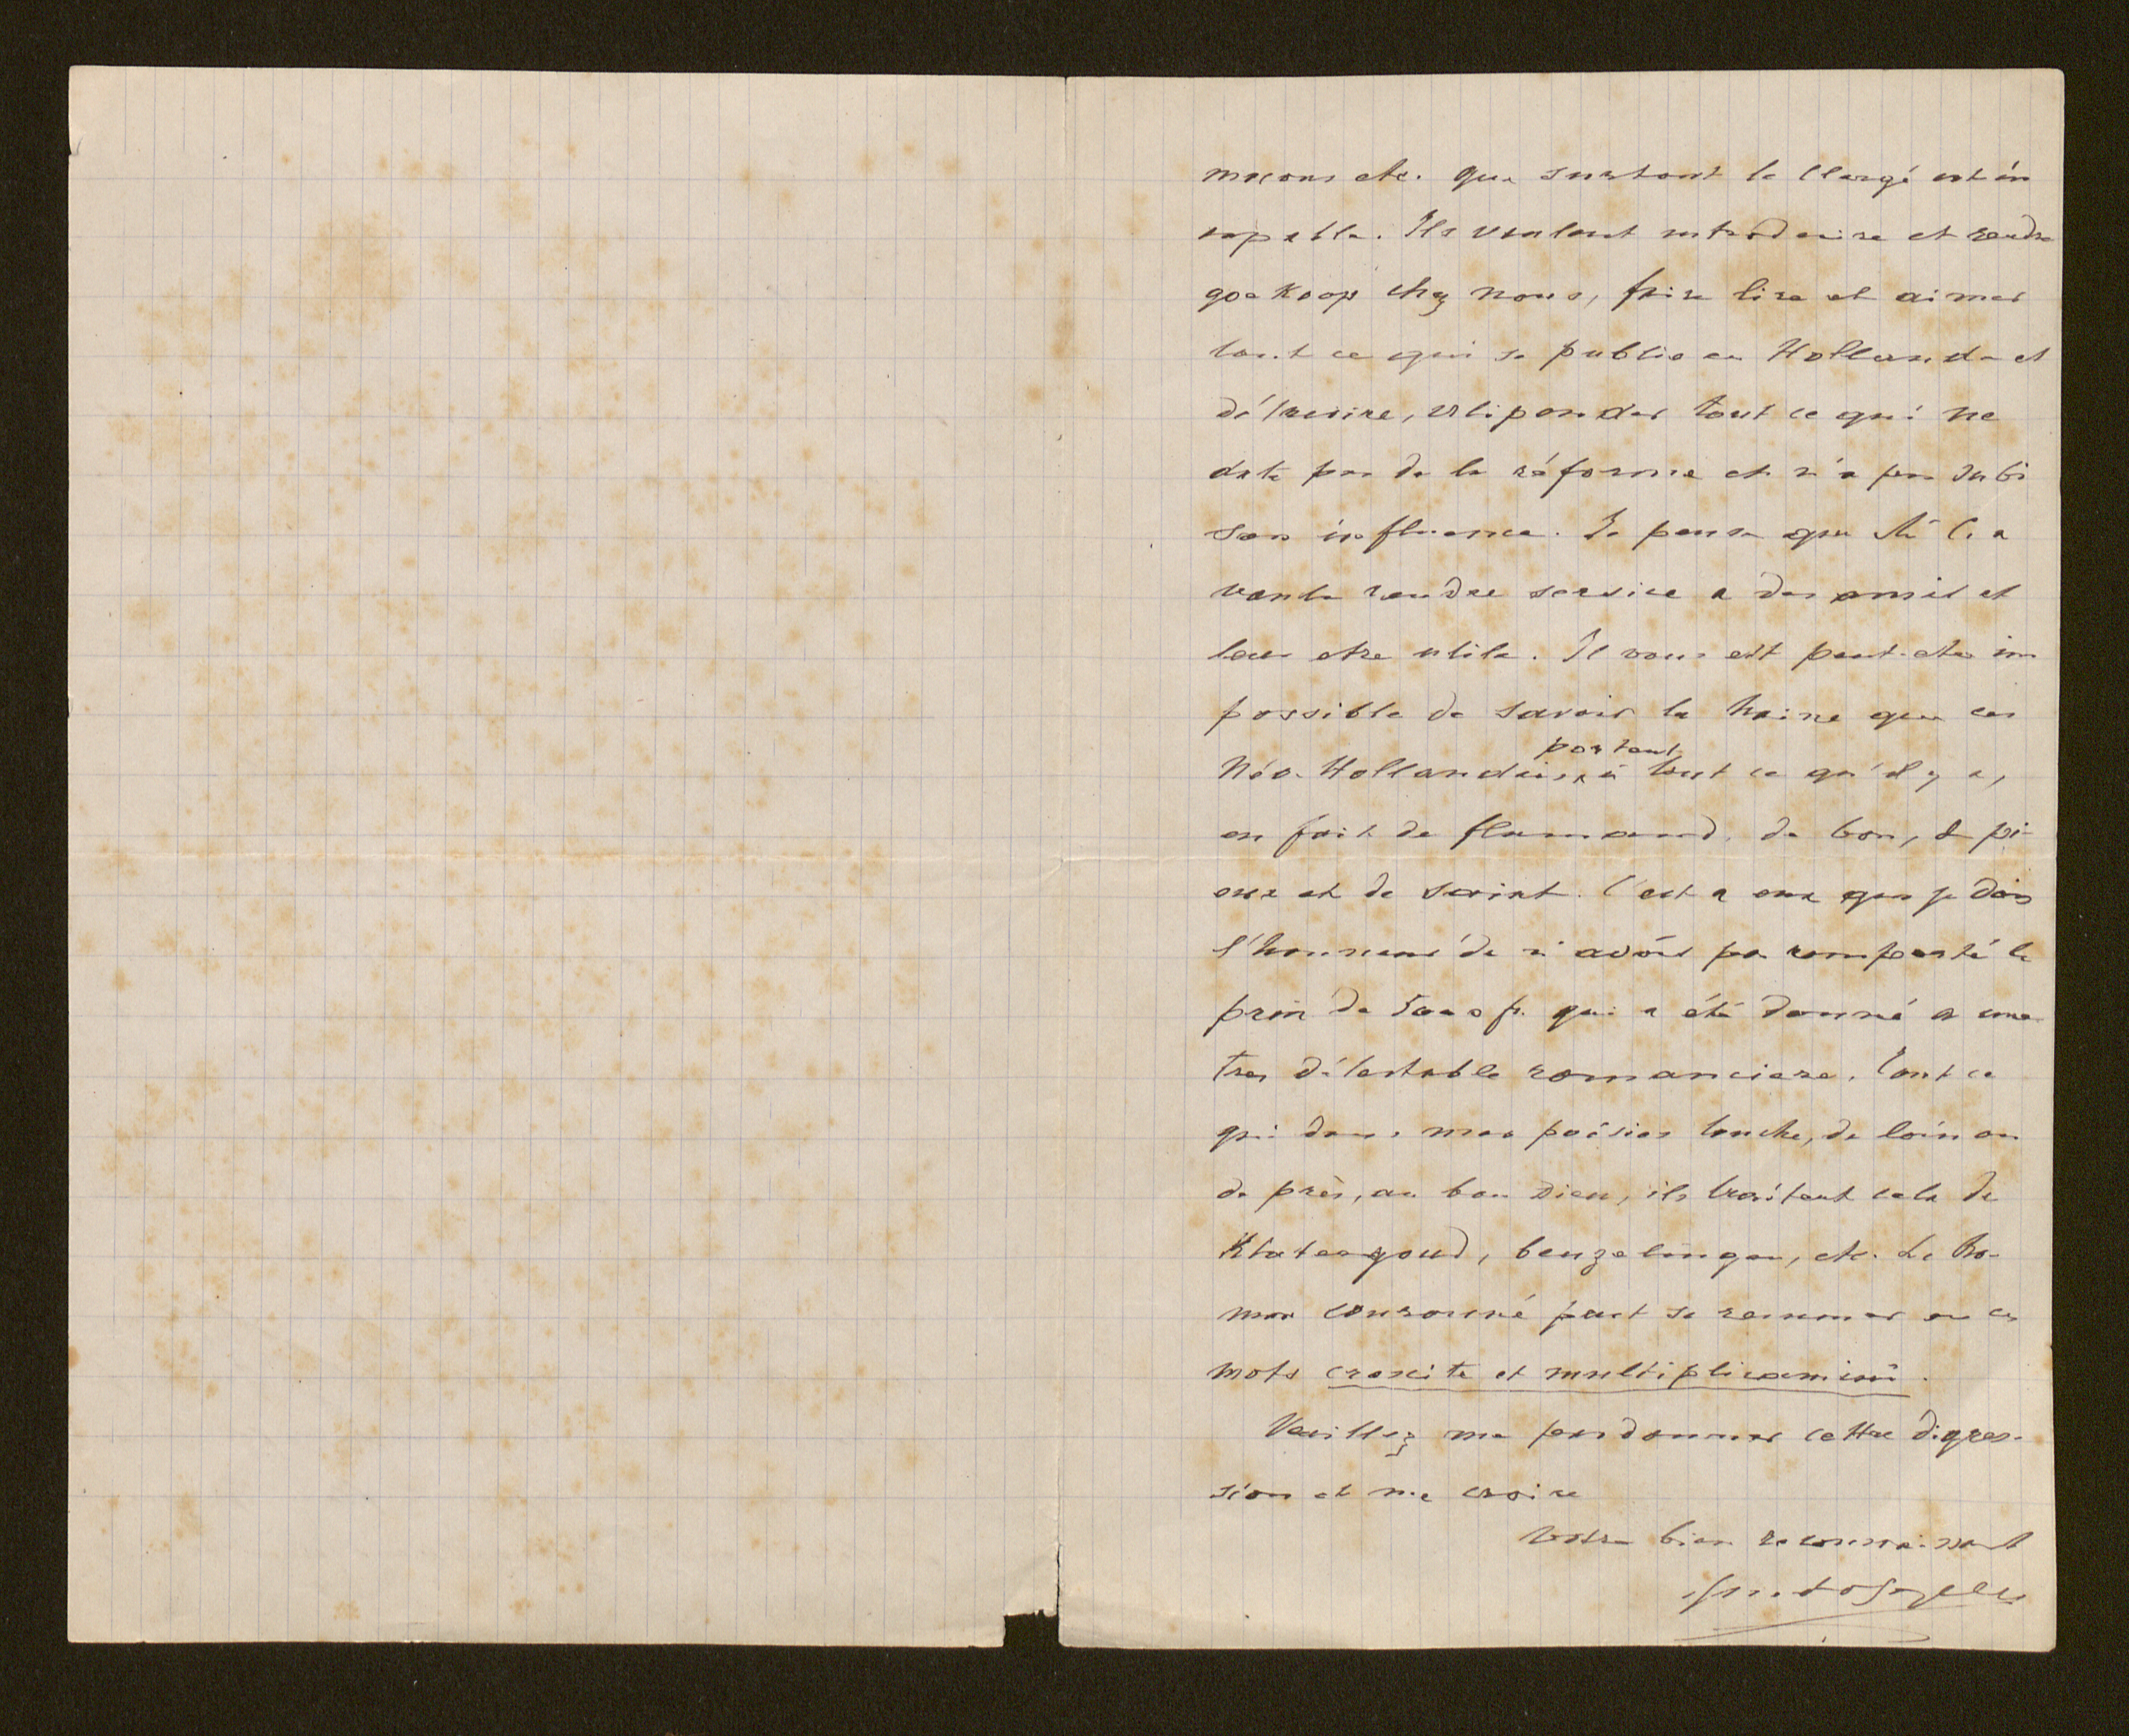 macons etc. que surtout le Clergé est in
capable. Ils veulent introduire et rendre
goekoop chez nous, faire lire et aimer
tout ce qui se publie en Hollande et
détruire, vilipender tout ce qui ne
date pas de la réforme et n'a pas subi
son influence. Je pense que a
voulu rendre service a des amis et
leur etre utile. Il vous est peut-etre im
possible de savoir la haine que ces
Néo-Hollandais portent à tout ce qu'il y a,
en fait de flamand, de bon, de pi-
eux et de saint. C'est a eux que je dois
l'honneur de n'avoir pas remporté le
prix de 5000 fr. qui a été donné a une
tres détestable romanciere. Tout ce
qui dans mes poésies touche, de loin ou
de près, au bon Dieu, ils traitent cela de
Klatergoud, beuzelingen, etc. Le Ro-
man couronné peut se resumer en ces
mots crescite et multiplicamini.
Veuillez me pardonner cette digres-
sion et me croire
Votre bien reconnaissant
Guido Gezelle